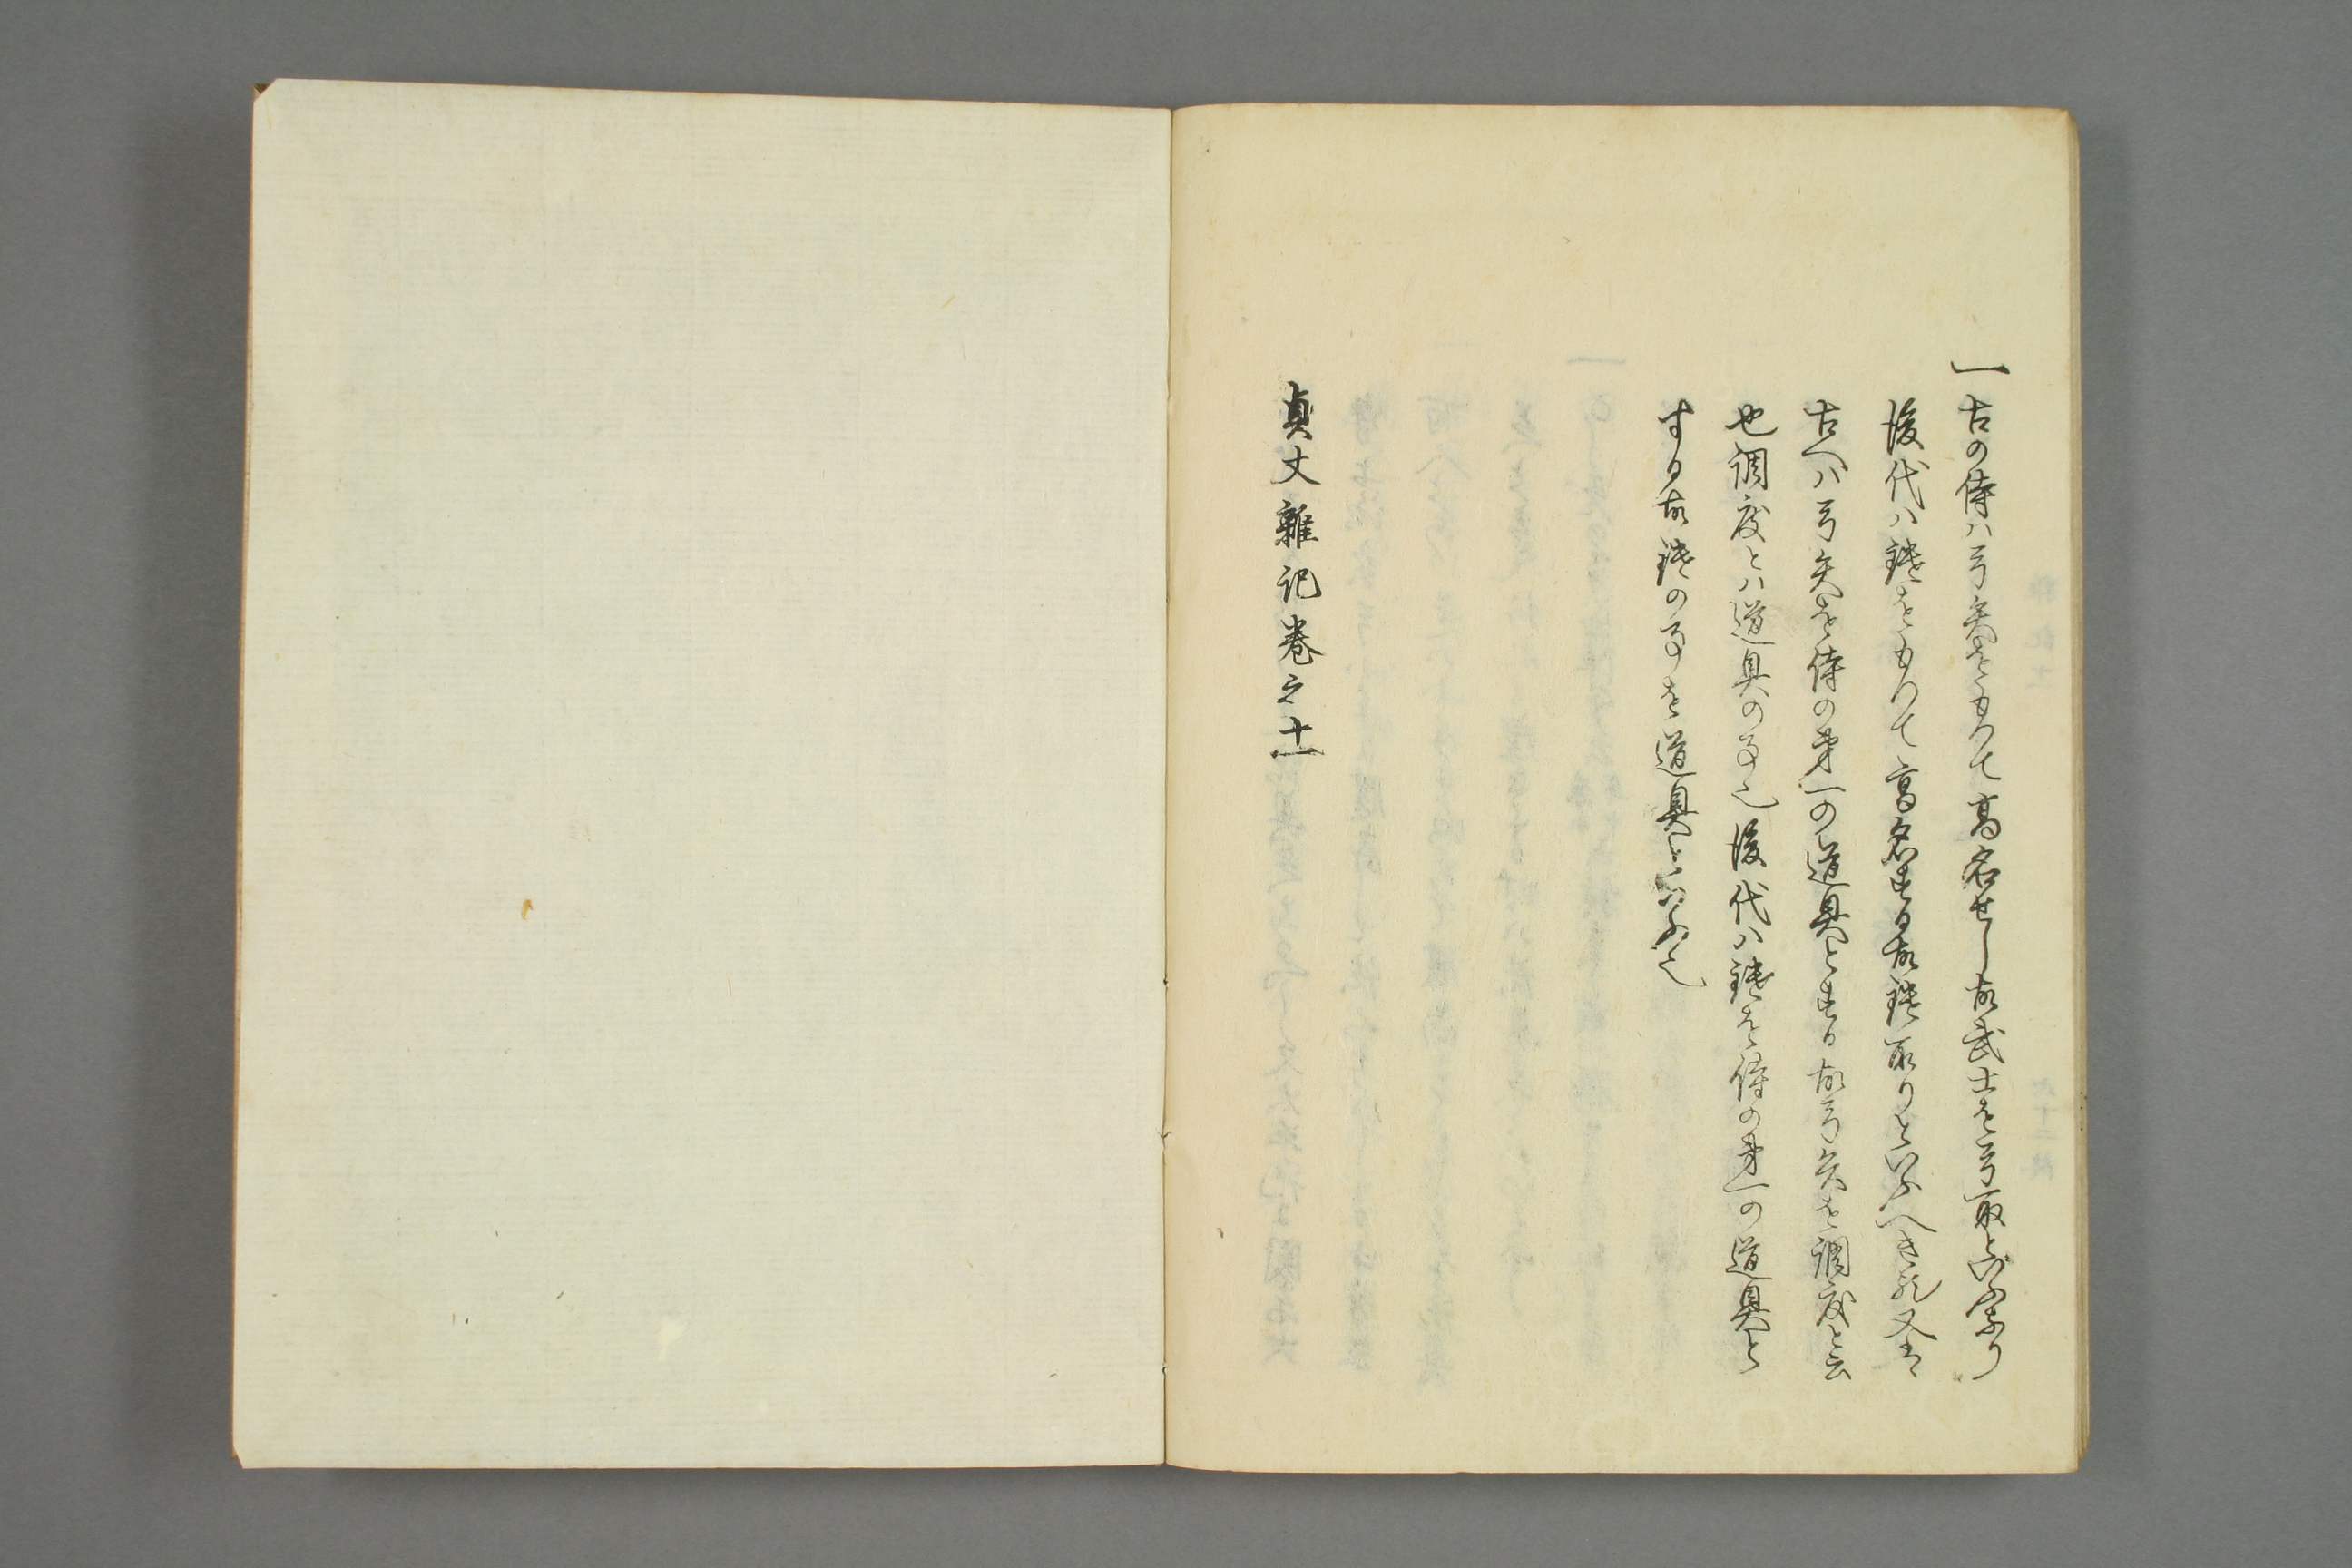 一古の侍ハ弓矢をもつて高名せし故武士を弓取といふなり
後代ハ鑓をもつて高名する故鑓取りといふへき歟又上
古へハ弓矢を侍の第一の道具とする故弓矢を調度と云
也調度とハ道具の事也後代ハ鑓を侍の第一の道具と
する故鑓の事を道具と云ふ也
貞丈雜記巻之十一